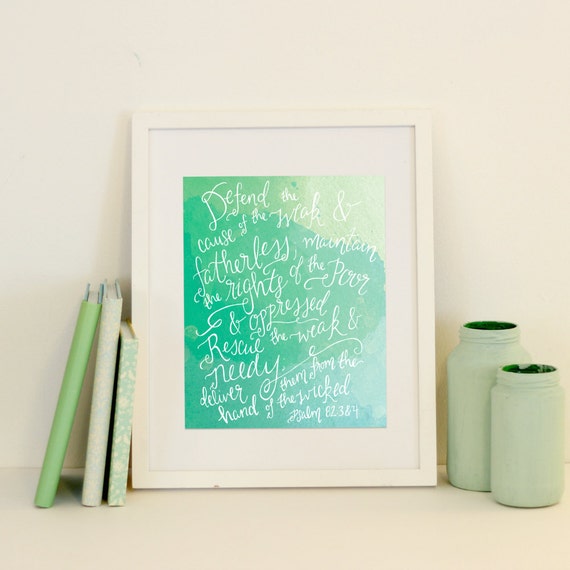 Defend the
cause of the weak &
fatherless; maintain
the rights of the Poor
& oppressed
Rescue the weak &
needy
deliver them from the
hand of the wicked
Psalm 82 3&4